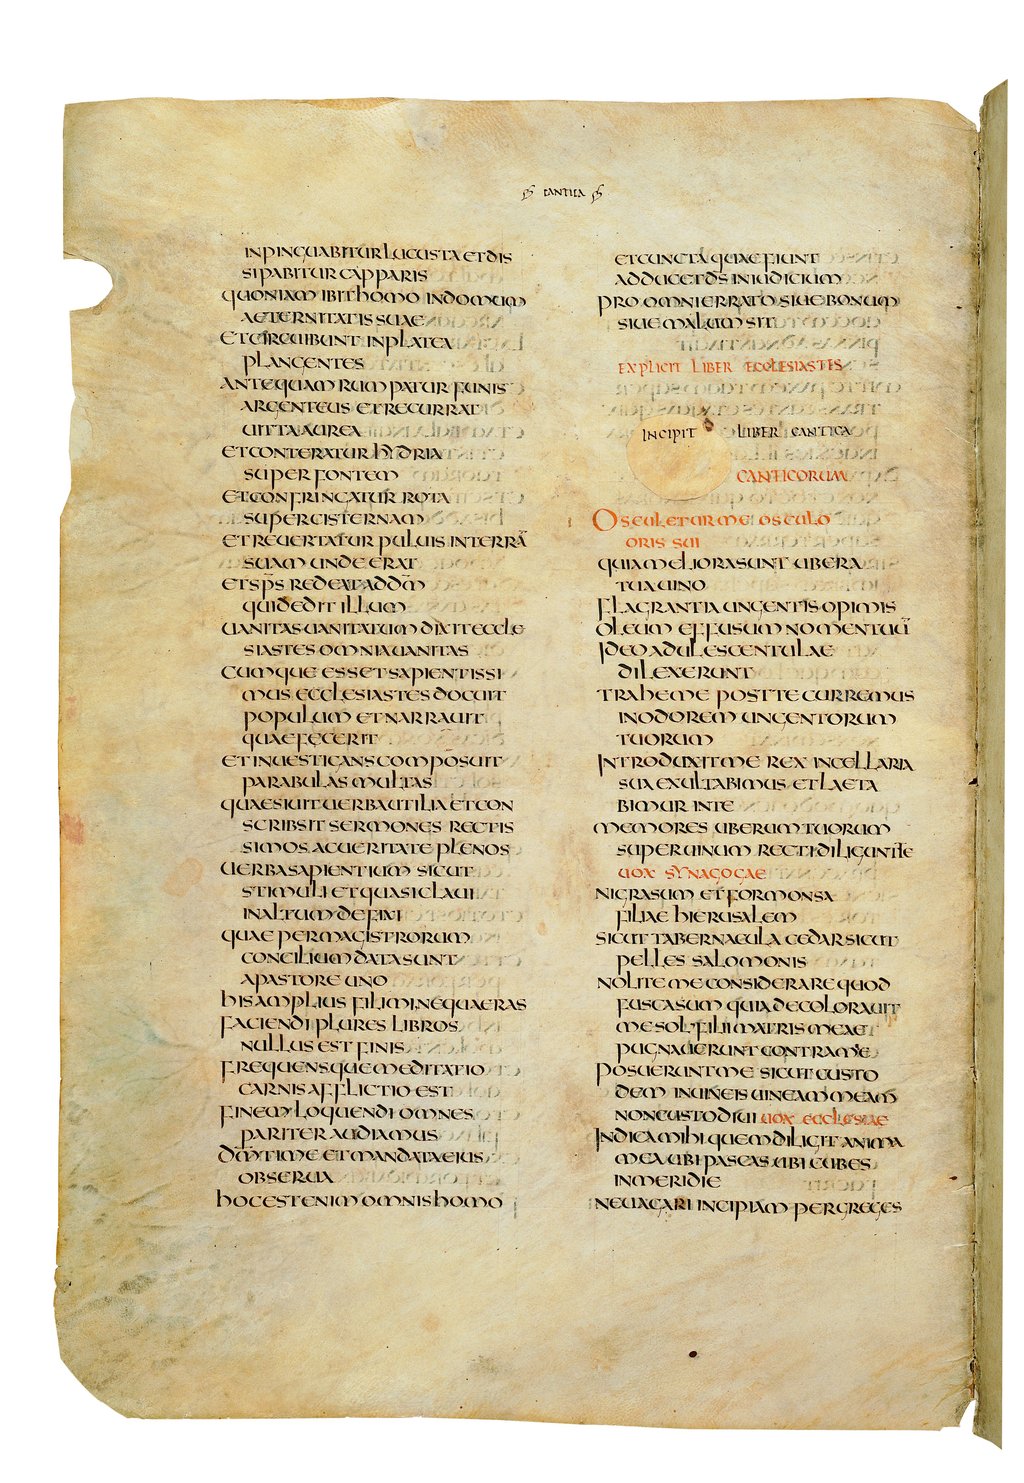 CANTICA
INPINGUABITUR LUCUSTA ET DIS
SIPABITUR CAPPARIS
QUONIAM IBIT HOMO IN DOMUM
AETERNITATIS SUAE
ET CIRCUIBUNT IN PLATEA
PLANGENTES
ANTEQUAM RUMPATUR FUNIS
ARGENTEUS ET RECURRAT
UITTA AUREA
ET CONTERATUR HYDRIA
SUPER FONTEM
ET CONFRINGATUR ROTA
SUPER CISTERNAM
ET REUERTATUR PULUIS IN TERRĀ
SUAM UNDE ERAT
ET SP̄S REDEAT AD DM̄
QUI DEDIT ILLUM
UANITAS UANITATUM DIXIT ECCLE
SIASTES OMNIA UANITAS
CUMQUE ESSET SAPIENTISSI
MUS ECCLESIASTES DOCUIT
POPULUM ET NARRAUIT
QUAE FECERIT
ET INUESTIGANS COMPOSUIT
PARABULAS MULTAS
QUAESIUIT UERBA UTILIA ET CON
SCRIBSIT SERMONES RECTIS
SIMOS AC UERITATE PLENOS
UERBA SAPIENTIUM SICUT
STIMULI ET QUASI CLAUI
IN ALTUM DEFIXI
QUAE PER MAGISTRORUM
CONCILIUM DATA SUNT
A PASTORE UNO
HIS AMPLIUS FILI MI NE QUAERAS
FACIENDI PLURES LIBROS
NULLUS EST FINIS
FREQUENSQUE MEDITATIO
CARNIS AFFLICTIO EST
FINEM LOQUENDI OMNES
PARITER AUDIAMUS
DM̄ TIME ET MANDATA EIUS
OBSERUA
HOC EST ENIM OMNIS HOMO
ET CUNCTA QUAE FIUNT
ADDUCET DS̄ IN IUDICIUM
PRO OMNI ERRATO SIUE BONUM
SIUE MALUM SIT
EXPLICIT LIBER ECCLESIASTES
INCIPIT LIBER CANTICA
CANTICORUM
OSCULETUR ME OSCULO
ORIS SUI
QUIA MELIORA SUNT UBERA
TUA UINO
FLAGRANTIA UNGENTIS OPIMIS
OLEUM EFFUSUM NOMEN TUŪ
IDEO ADULESCENTULAE
DILEXERUNT
TRAHE ME POST TE CURREMUS
IN ODOREM UNGENTORUM
TUORUM
INTRODUXIT ME REX IN CELLARIA
SUA EXULTABIMUS ET LAETA
BIMUR IN TE
MEMORES UBERUM TUORUM
SUPER UINUM RECTI DILIGUNT TE
UOX SYNAGOGAE
NIGRA SUM ET FORMONSA
FILIAE HIERUSALEM
SICUT TABERNACULA CEDAR SICUT
PELLES SALOMONIS
NOLITE ME CONSIDERARE QUOD
FUSCA SUM QUIA DECOLORAUIT
ME SOL FILII MATRIS MEAE
PUGNAUERUNT CONTRA ME
POSUERUNT ME CUSTO
DEM IN UINEIS UINEAM MEAM
NON CUSTODIUI UOX ECCLESIAE
INDICA MIHI QUEM DILIGIT ANIMA
MEA UBI PASCAS UBI CUBES
IN MERIDIE
NE UAGARI INCIPIAM PER GREGES